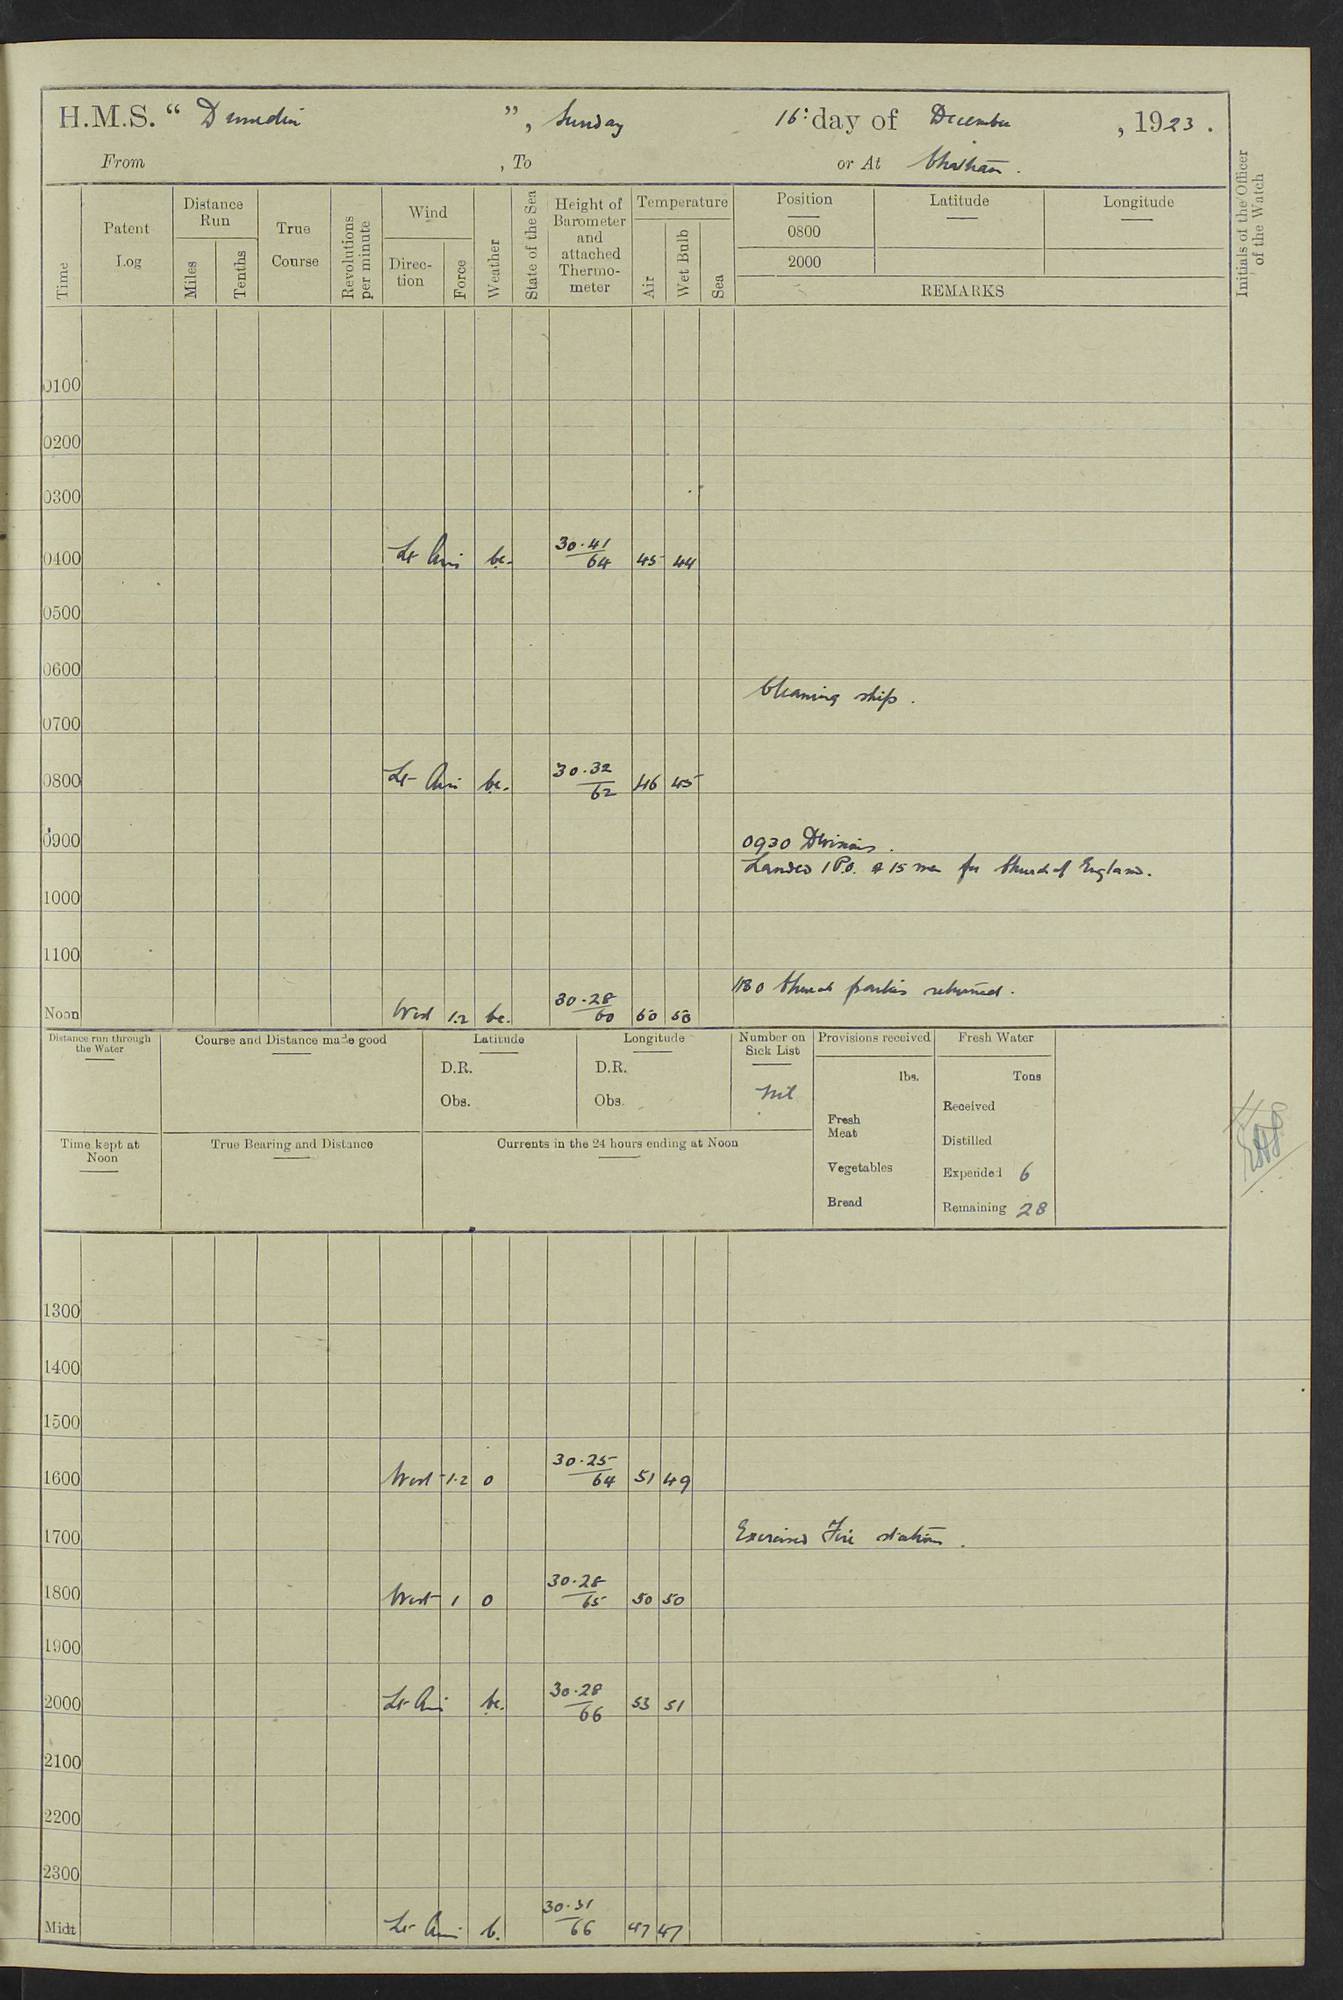 H.M.S. “ Dunedin ”, Sunday 16: day of December, 1923.
From , To or At Chatham.
Time
Patent Log
Distance Run
Miles
Tenths
True Course
Revolutions per minute
Wind
Direction
Force
Weather
State of the Sea
Height of Barometer and attached Thermometer
Temperature
Air
Wet Bulb
Sea
Position
0800
2000
Latitude
Longitude
REMARKS
Initials of the Officer of the Watch
0100
0200
0300
0400 Lt Airs bc. 30.41/64 45 44
0500
0600
Cleaning ship.
0700
0800 Lt Airs bc. 30.32/62 46 45
0900 0930 Divisions.
Landed 1 P.O. & 15 men for Church of England.
1000
1100
1130 Church parties returned.
Noon West 1.2 bc. 30.28/60 50 50
Distance run through the Water
Course and Distance made good
Latitude
D.R.
Obs.
Longitude
D.R.
Obs.
Number on Sick List
Nil
Provisions received
lbs.
Fresh Meat
Vegetables
Bread
Fresh Water
Tons
Received
Distilled
Expended 6
Remaining 28
Time kept at Noon
True Bearing and Distance
Currents in the 24 hours ending at Noon
1300
1400
1500
1600 West 1.2 o 30.25/64 51 49
1700 Exercised Fire stations.
1800 West 1 o 30.28/65 50 50
1900
2000 Lt Airs bc. 30.28/66 53 51
2100
2200
2300
Midt Lt Airs b. 30.31/66 47 47